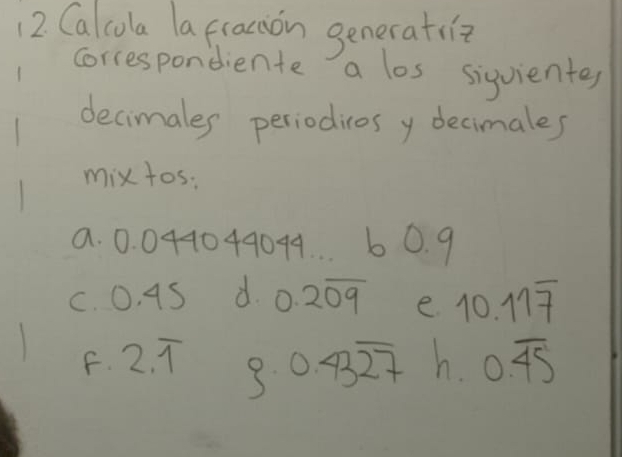 12. Calcula la fracción generatríz
correspondiente a los siguientes
decimales periodicos y decimales
mixtos:
a. 0.044044044... b 0.9
c. 0.45 d. 0.2\overline{09} e. 10.11\overline{7}
f. 2.\overline{1} g. 0.43\overline{27} h. 0.\overline{45}